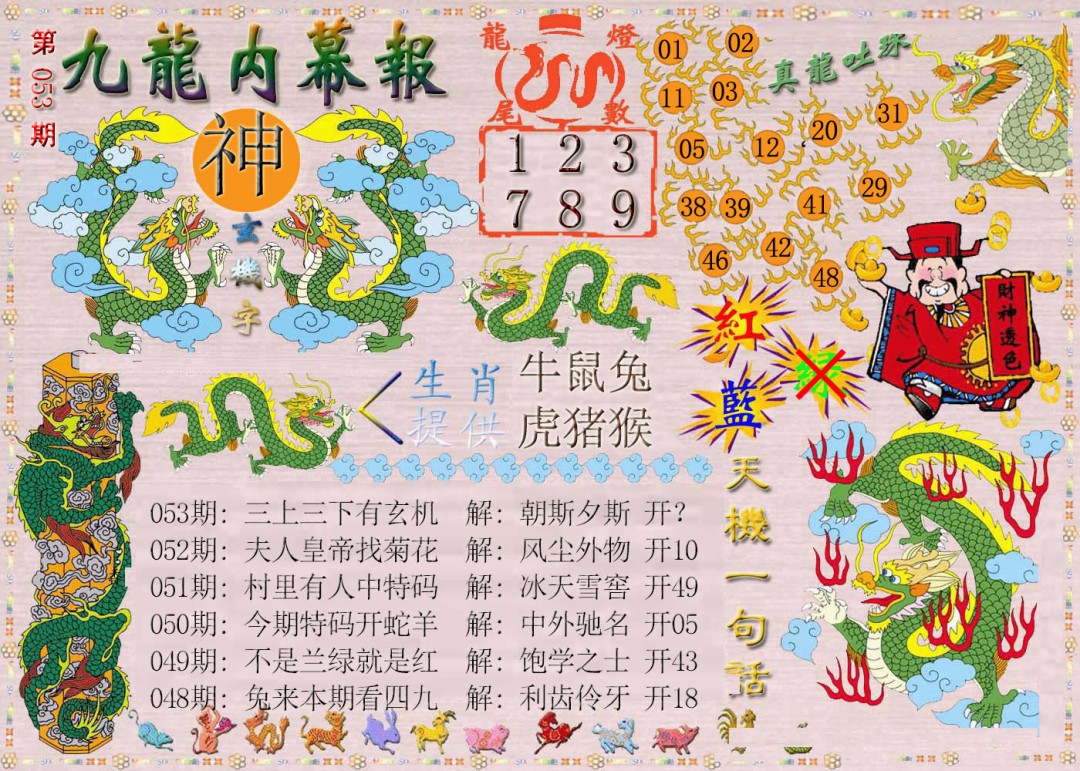 第053期
九龍内幕報
神
玄機字
龍燈
尾數
1 2 3
7 8 9
01 02
11 03
05 12 20 31
38 39 41 29
46 42 48
真龍吐珠
財神透色
紅
藍
绿
生肖
提供
牛鼠兔
虎猪猴
053期：三上三下有玄机 解：朝斯夕斯 开？
052期：夫人皇帝找菊花 解：风尘外物 开10
051期：村里有人中特码 解：冰天雪窖 开49
050期：今期特码开蛇羊 解：中外驰名 开05
049期：不是兰绿就是红 解：饱学之士 开43
048期：兔来本期看四九 解：利齿伶牙 开18
天機一句話